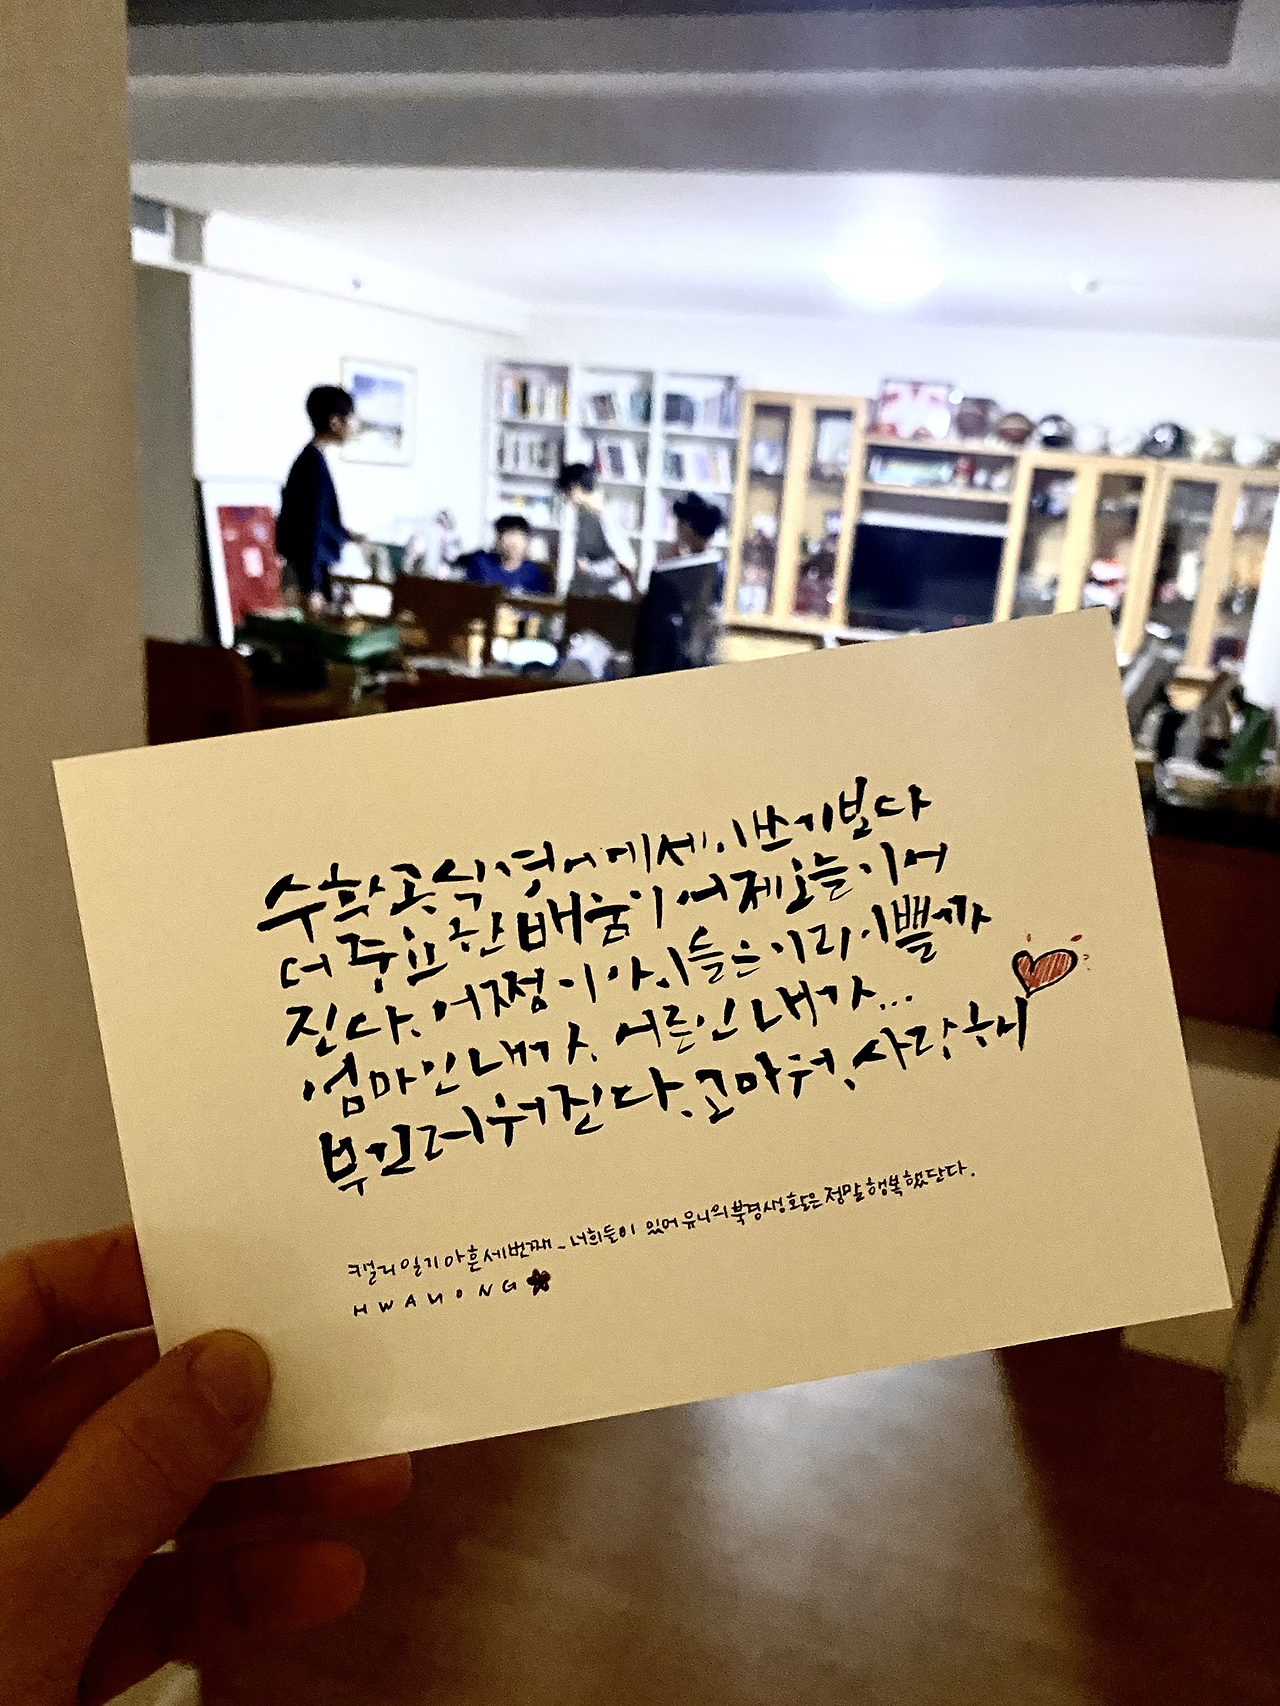 수학공식, 영어에세이쓰기보다
더 중요한 배움이 어제오늘 이어
진다. 어쩜 이 아이들은 이리 이쁠까
엄마인 내가, 어른인 내가...
부끄러워진다. 고마워, 사랑해
캘리일기 아흔세번째 - 너희들이 있어 유니의 북경생활은 정말 행복했단다.
HWAHONG